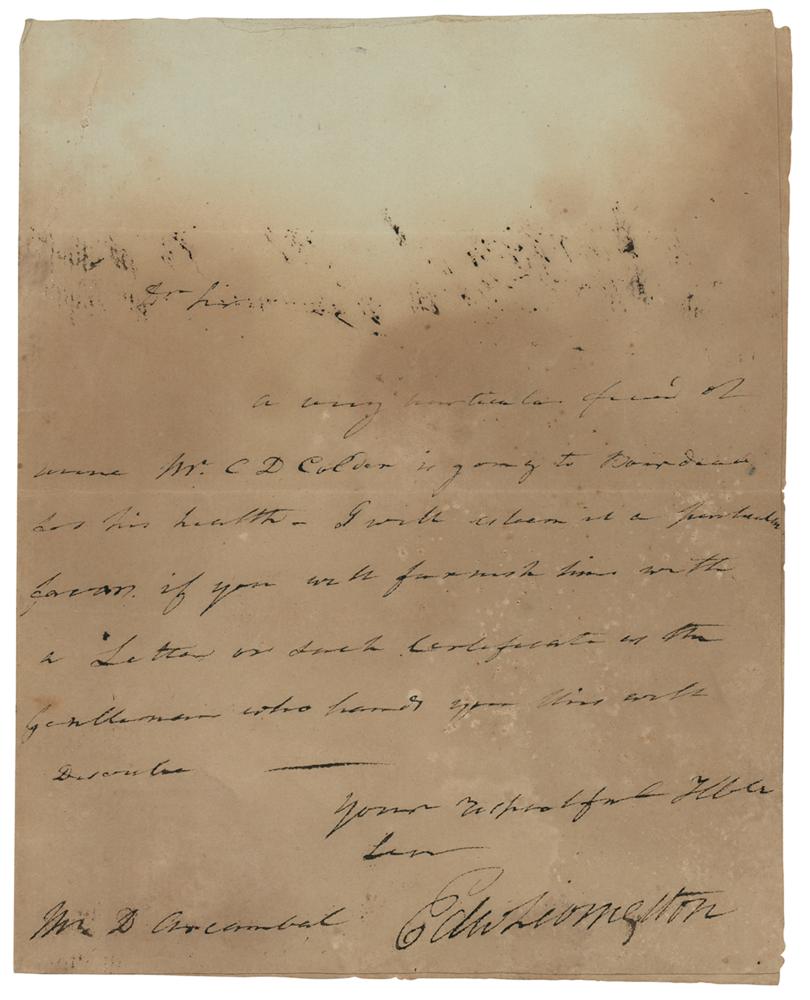 Dr Sir
a very particular friend of
mine Mr. C D Colden is going to Bourdeaux
for his health - I will esteem it a particular
favor if you will furnish him with
a Letter or such Certificate as the
Gentleman who hands you this will
Describe
Your respectful Hble
Ser
Mr D Arcambal Edw Livingston